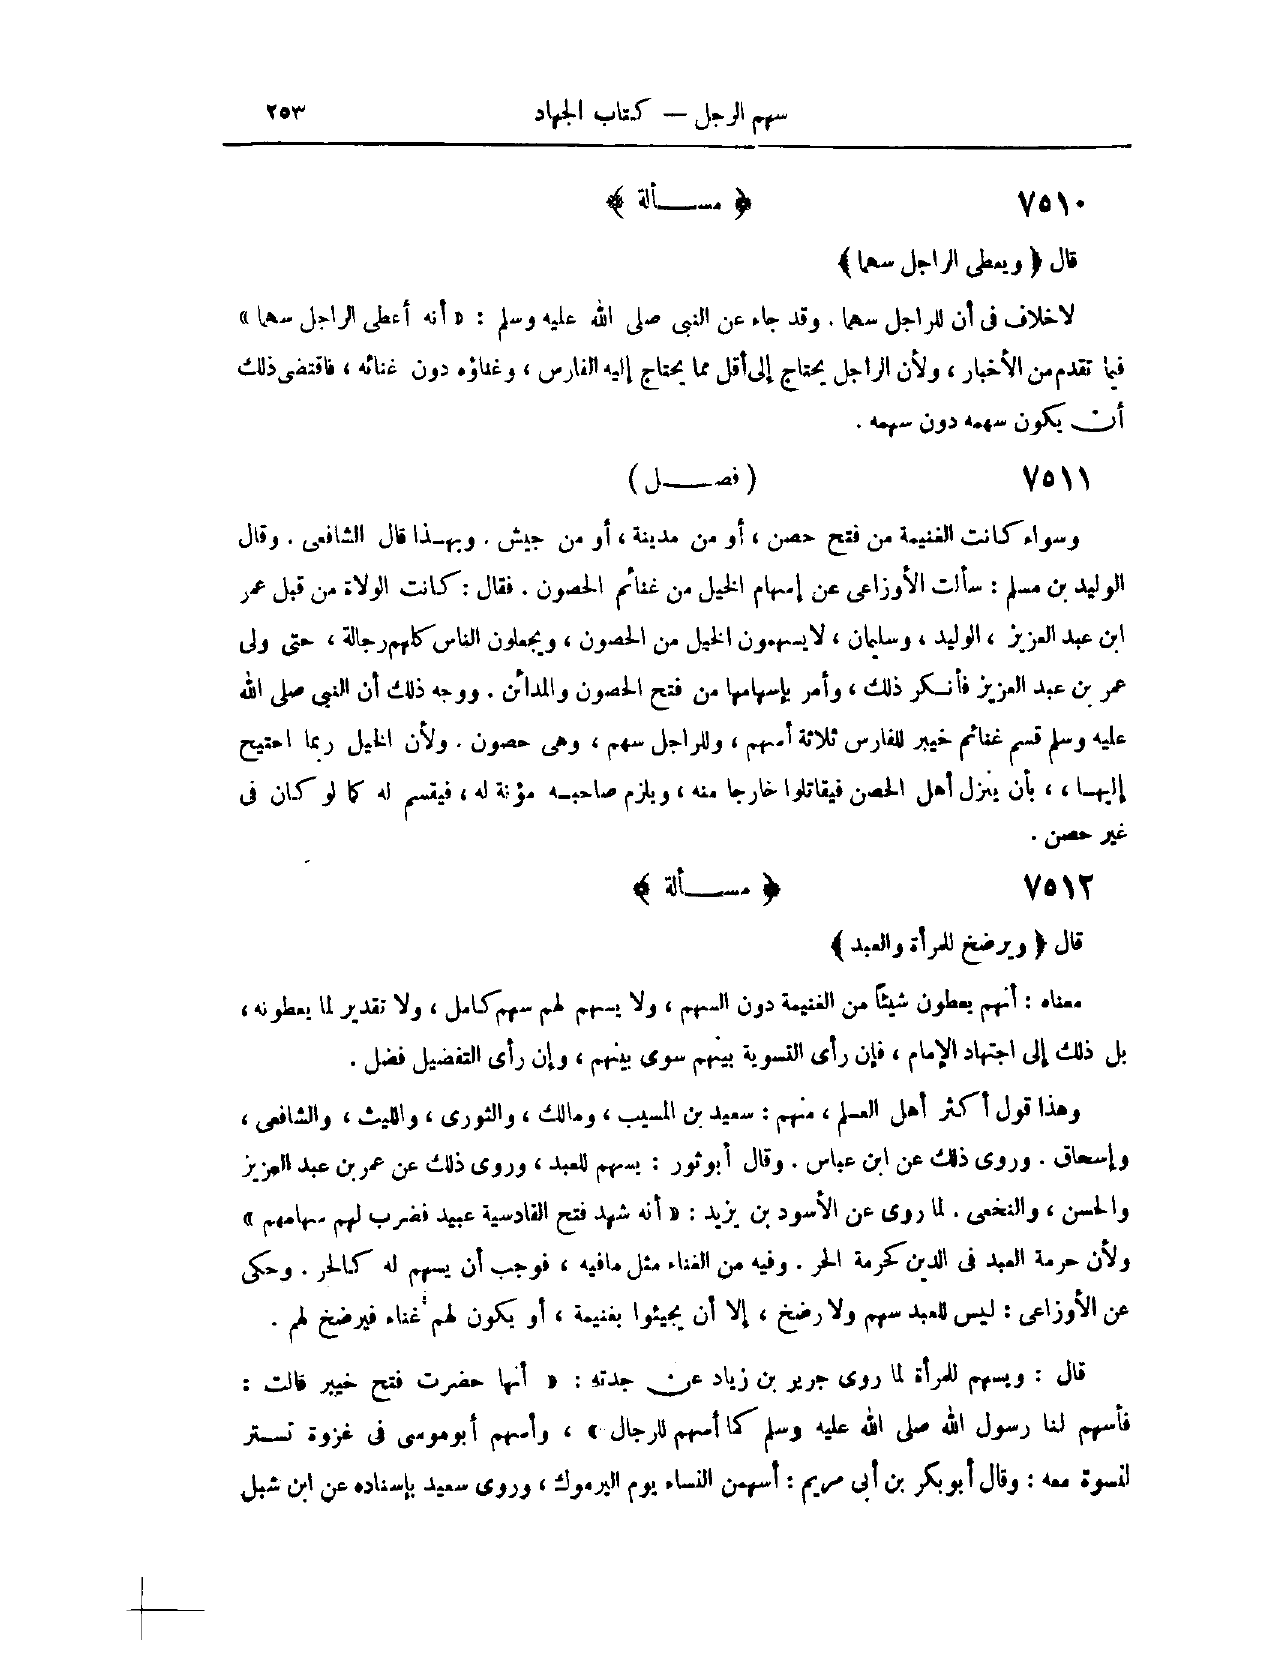 سهم الرجل — كتاب الجهاد ٢٥٣
٧٥١٠ ﴿ مســألة ﴾
قال ﴿ ويعطى الراجل سهما ﴾
لاخلاف فى أن للراجل سهما . وقد جاء عن النبى صلى الله عليه وسلم : « أنه أعطى الراجل سهما »
فيما تقدم من الأخبار ، ولأن الراجل يحتاج إلى أقل مما يحتاج إليه الفارس ، وغناؤه دون غنائه ، فاقتضى ذلك
أن يكون سهمه دون سهمه .
٧٥١١ ( فصــل )
وسواء كانت الغنيمة من فتح حصن ، أو من مدينة ، أو من جيش . وبهـذا قال الشافعى . وقال
الوليد بن مسلم : سألت الأوزاعى عن إسهام الخيل من غنائم الحصون . فقال : كانت الولاة من قبل عمر
ابن عبد العزيز ، الوليد ، وسليمان ، لايسهمون الخيل من الحصون ، ويجعلون الناس كلهم رجالة ، حتى ولى
عمر بن عبد العزيز فأنـكر ذلك ، وأمر بإسهامها من فتح الحصون والمدائن . ووجه ذلك أن النبى صلى الله
عليه وسلم قسم غنائم خيبر للفارس ثلاثة أسهم ، وللراجل سهم ، وهى حصون . ولأن الخيل ربما احتيح
إليهـا ، ، بأن ينزل أهل الحصن فيقاتلوا خارجا منه ، ويلزم صاحبـه مؤنة له ، فيقسم له كما لو كان فى
غير حصن .
٧٥١٢ ﴿ مســألة ﴾
قال ﴿ ويرضخ للمرأة والعبد ﴾
معناه : أنهم يعطون شيئاً من الغنيمة دون السهم ، ولا يسهم لهم سهم كامل ، ولا تقدير لما يعطونه ،
بل ذلك إلى اجتهاد الإمام ، فإن رأى التسوية بينهم سوى بينهم ، وإن رأى التفضيل فضل .
وهذا قول أكثر أهل العـلم ، منهم : سعيد بن المسيب ، ومالك ، والثورى ، والليث ، والشافعى ،
وإسحاق . وروى ذلك عن ابن عباس . وقال أبو ثور : يسهم للعبد ، وروى ذلك عن عمر بن عبد العزيز
والحسن ، والنخعى . لما روى عن الأسود بن يزيد : « أنه شهد فتح القادسية عبيد فضرب لهم سهامهم »
ولأن حرمة العبد فى الدين كحرمة الحر . وفيه من الغناء مثل مافيه ، فوجب أن يسهم له كالحر . وحكى
عن الأوزاعى : ليس للعبد سهم ولا رضخ ، إلا أن يجيئوا بغنيمة ، أو يكون لهم غناء فيرضخ لهم .
قال : ويسهم للمرأة لما روى جرير بن زياد عن جدته : « أنها حضرت فتح خيبر قالت :
فأسهم لنا رسول الله صلى الله عليه وسلم كما أسهم للرجال » ، وأسهم أبو موسى فى غزوة تستر
لنسوة معه : وقال أبو بكر بن أبى مريم : أسهمن النساء يوم اليرموك ، وروى سعيد بإسناده عن ابن شبل